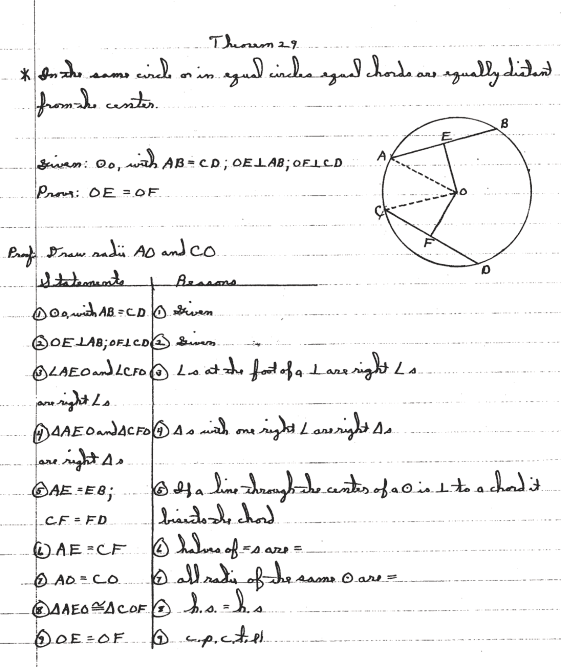 Theorem 29
* In the same circle or in equal circles equal chords are equally distant
from the center.
Given: ⊙O, with AB = CD; OE⊥AB; OF⊥CD
Prove: OE = OF
A
E
B
O
C
F
D
Proof: Draw radii AO and CO
Statements Reasons
① ⊙O, with AB = CD ① Given
② OE⊥AB; OF⊥CD ② Given
③ ∠AEO and ∠CFO ③ ∠s at the foot of a ⊥ are right ∠s
are right ∠s
④ △AEO and △CFO ④ △s with one right ∠ are right △s
are right △s
⑤ AE = EB; ⑤ If a line through the center of a ⊙ is ⊥ to a chord it
CF = FD bisects the chord
⑥ AE = CF ⑥ halves of =s are =
⑦ AO = CO ⑦ all radii of the same ⊙ are =
⑧ △AEO ≅ △COF ⑧ h.s. = h.s
⑨ OE = OF ⑨ c.p.c.t.e